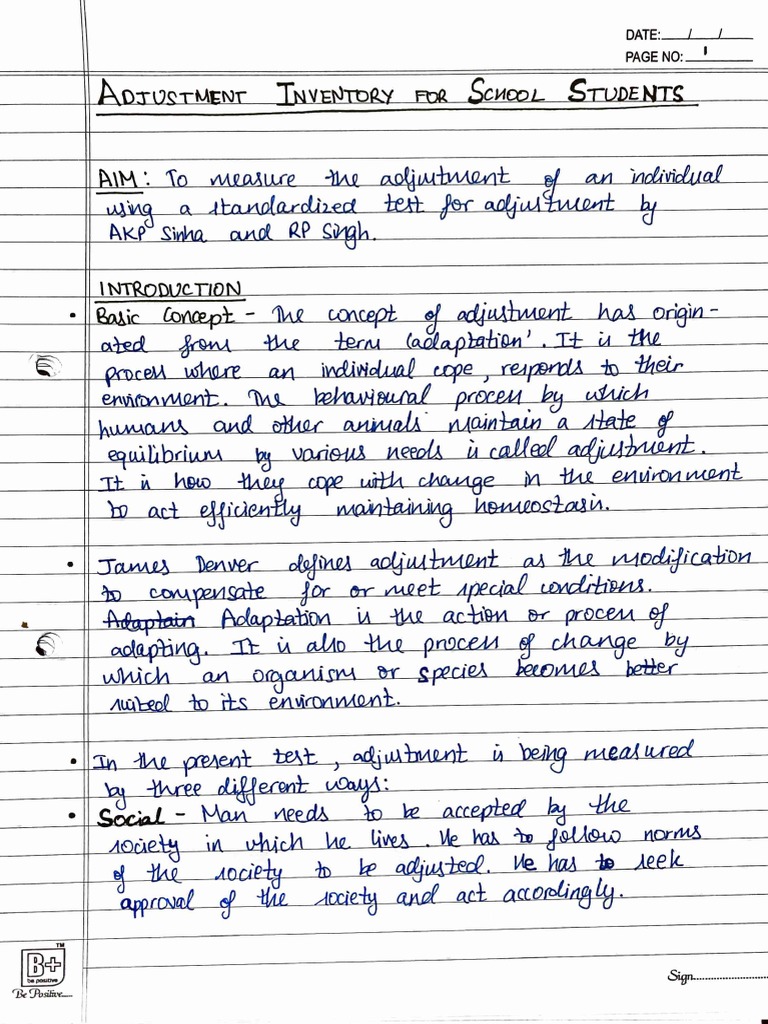 DATE: / /
PAGE NO: 1
ADJUSTMENT INVENTORY FOR SCHOOL STUDENTS
AIM: To measure the adjustment of an individual
using a standardized test for adjustment by
AKP Sinha and RP Singh.
INTRODUCTION
• Basic Concept - The concept of adjustment has origin-
ated from the term 'adaptation'. It is the
process where an individual cope, responds to their
environment. The behavioural process by which
humans and other animals maintain a state of
equilibrium by various needs is called adjustment.
It is how they cope with change in the environment
to act efficiently maintaining homeostasis.
• James Denver defines adjustment as the modification
to compensate for or meet special conditions.
Adaptain Adaptation is the action or process of
adapting. It is also the process of change by
which an organism or species becomes better
suited to its environment.
• In the present test, adjustment is being measured
by three different ways:
• Social - Man needs to be accepted by the
society in which he lives. He has to follow norms
of the society to be adjusted. He has to seek
approval of the society and act accordingly.
B+ TM
be positive
Be Positive.....
Sign..................